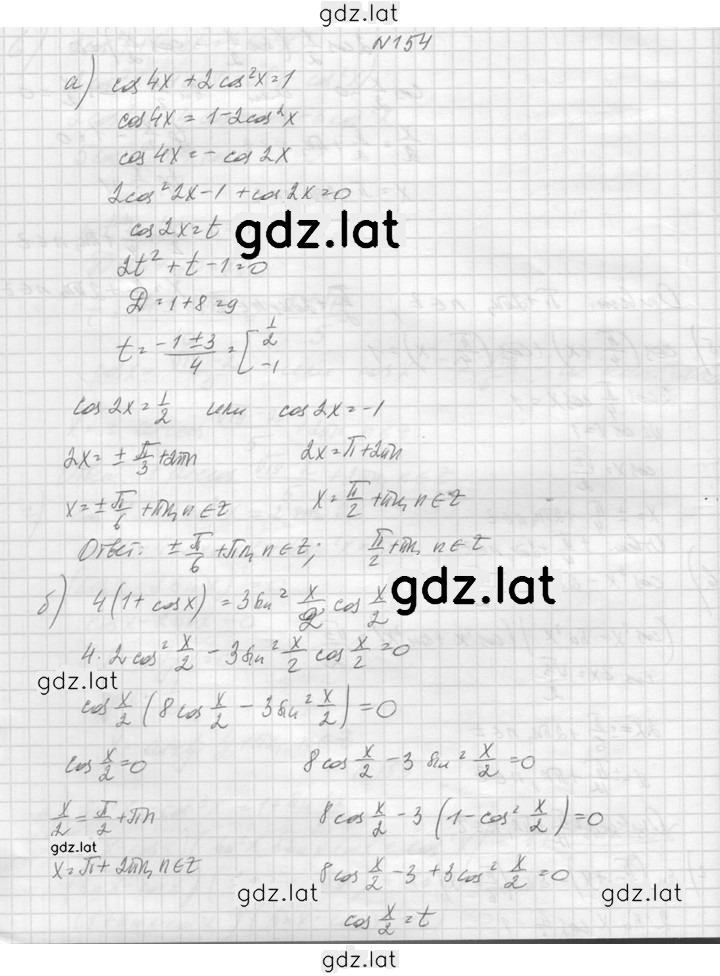 gdz.lat
N154
а) cos4x + 2cos²x = 1
cos4x = 1 - 2cos²x
cos4x = - cos2x
2cos²2x - 1 + cos2x = 0
cos2x = t
gdz.lat
2t² + t - 1 = 0
D = 1 + 8 = 9
t = (-1 ± 3)/4 = [1/2; -1
cos2x = 1/2 или cos2x = -1
2x = ± π/3 + 2πn 2x = π + 2πn
x = ± π/6 + πn, n ∈ Z x = π/2 + πn, n ∈ Z
Ответ: ± π/6 + πn, n ∈ Z; π/2 + πn, n ∈ Z
gdz.lat
б) 4(1 + cosx) = 3sin² x/2 cos x/2
4·2cos² x/2 - 3sin² x/2 cos x/2 = 0
gdz.lat
cos x/2 (8cos x/2 - 3sin² x/2) = 0
cos x/2 = 0 8cos x/2 - 3sin² x/2 = 0
x/2 = π/2 + πn 8cos x/2 - 3(1 - cos² x/2) = 0
gdz.lat
x = π + 2πn, n ∈ Z 8cos x/2 - 3 + 3cos² x/2 = 0
gdz.lat gdz.lat
cos x/2 = t
gdz.lat